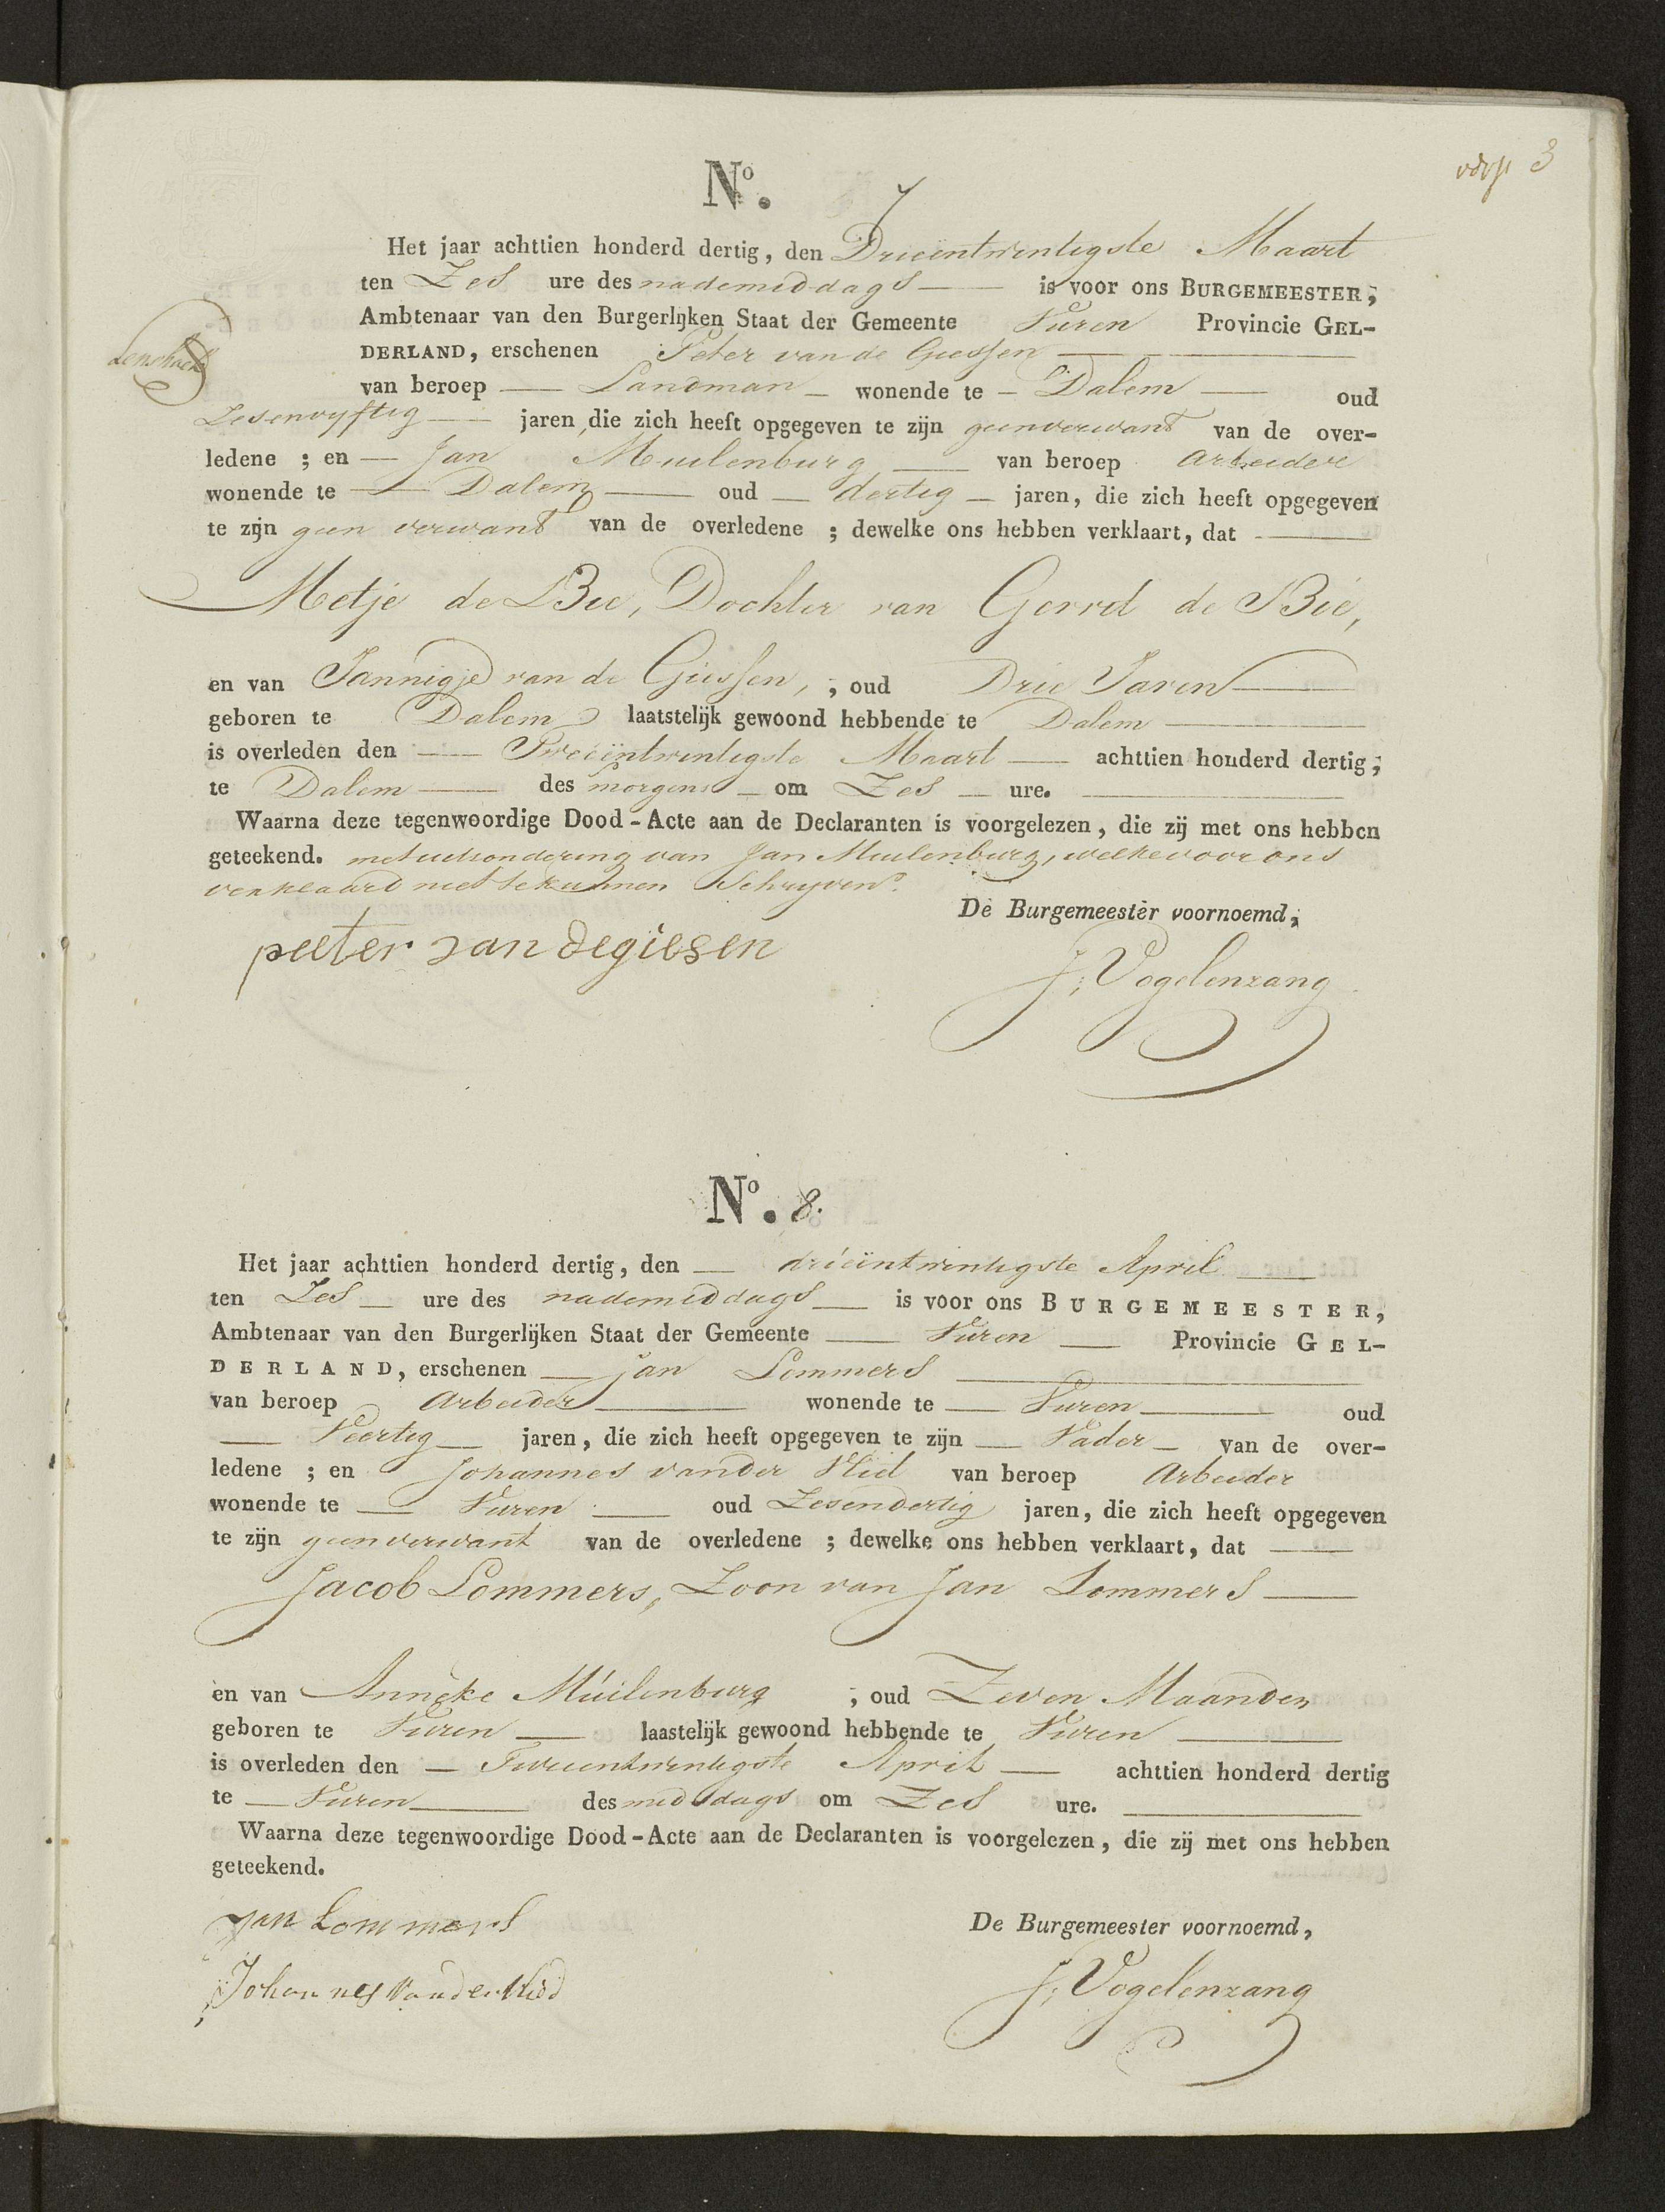 3
N°. 7
Het jaar achttien honderd dertig, den Drieentwintigste Maart
ten Zes ure des nademiddags — is voor ons BURGEMEESTER,
Ambtenaar van den Burgerlijken Staat der Gemeente Vuren Provincie GEL-
DERLAND, erschenen Peter van de Giessen —
van beroep — Landman — wonende te — Dalem — oud
Zesenvyftig — jaren, die zich heeft opgegeven te zijn geenverwant van de over-
ledene ; en — Jan Muilenburg — van beroep Arbeider
wonende te — Dalem — oud — dertig — jaren, die zich heeft opgegeven
te zijn geen verwant van de overledene ; dewelke ons hebben verklaart, dat —
Metje de Bie, Dochter van Gerrd de Bie,
en van Jannigje van de Giessen, , oud Drie Jaren —
geboren te Dalem laatstelijk gewoond hebbende te Dalem —
is overleden den — Tweeëntwintigste Maart — achttien honderd dertig,
te Dalem — des morgens — om Zes — ure. —
Waarna deze tegenwoordige Dood-Acte aan de Declaranten is voorgelezen, die zij met ons hebben
geteekend. met uitsondering van Jan Muilenburg, welke voor ons
verklaard niet te kunnen Schryven.
De Burgemeester voornoemd,
peeter van degiesen
J. Vogelenzang
N°. 8.
Het jaar achttien honderd dertig, den — drieëntwintigste April —
ten Zes — ure des nademiddags — is voor ons BURGEMEESTER,
Ambtenaar van den Burgerlijken Staat der Gemeente — Vuren — Provincie GEL-
DERLAND, erschenen — Jan Lommers —
van beroep Arbeider — wonende te — Vuren — oud
— Veertig — jaren, die zich heeft opgegeven te zijn — Vader — van de over-
ledene ; en Johannes vander Vlid van beroep Arbeider
wonende te — Vuren — oud Zesendertig jaren, die zich heeft opgegeven
te zijn geenverwant van de overledene ; dewelke ons hebben verklaart, dat —
Jacob Lommers, Zoon van Jan Lommers —
en van Anneke Muilenburg , oud Zeven Maanden
geboren te Vuren — laastelijk gewoond hebbende te Vuren —
is overleden den — Tweeentwintigste April — achttien honderd dertig
te — Vuren — des middags om Zes ure. —
Waarna deze tegenwoordige Dood-Acte aan de Declaranten is voorgelezen, die zij met ons hebben
geteekend.
Jan Lommers
De Burgemeester voornoemd,
Johannes vander Vlid
J. Vogelenzang